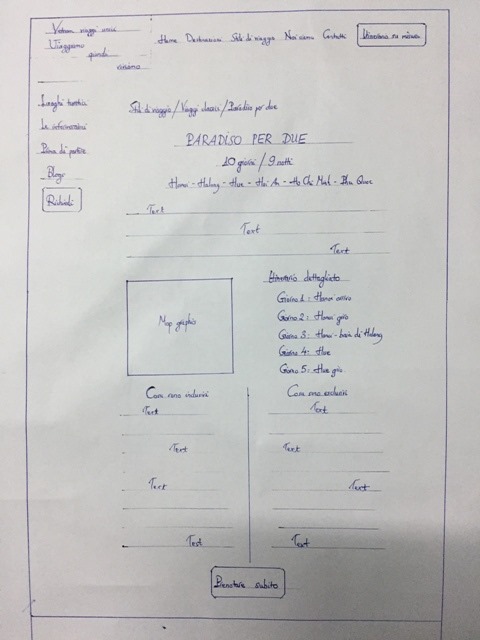 Vietnam viaggi unici
Viaggiamo
quindi
viviamo
Home Destinazioni Stile di viaggio Noi siamo Contatti
Itinerario su misura
Luoghi turistici
Le informazioni
Prima di partire
Blogs
Richiedi
Stile di viaggio / Viaggi classici / Paradiso per due
PARADISO PER DUE
10 giorni / 9 notti
Hanoi - Halong - Hue - Hoi An - Ho Chi Minh - Phu Quoc
Text
Text
Text
Map graphic
Itinerario dettagliato
Giorno 1: Hanoi arrivo
Giorno 2: Hanoi giro
Giorno 3: Hanoi - baia di Halong
Giorno 4: Hue
Giorno 5: Hue giro
Cosa sono inclusivi
Text
Text
Text
Text
Cosa sono esclusivi
Text
Text
Text
Text
Prenotare subito